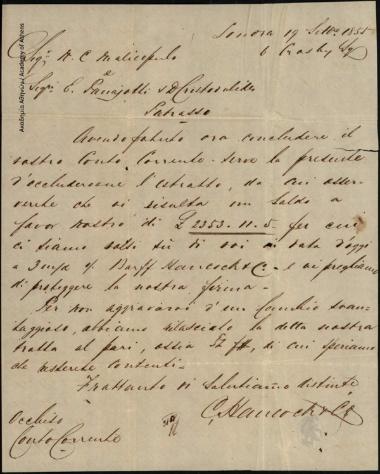 Londra 19 Settre 1855
6 Crosby Sq
Sigr N. C. Malicopulo
e
Sigri C. Panajotti & D Cristovalides
Patrasso
Avendo potuto ora concludere il
vostro Conto Corrente - serve la presente
d'occludervene l'estratto, da cui osser-
verete che vi risulta un saldo a
favor nostro di £ 2353.11.5. per cui
ci siamo valsi su di voi in data d'oggi
a 3 m/d o/ Barff Hancock & C. - e vi preghiamo
di proteggere la nostra firma -
Per non aggravarvi d'un Cambio svan-
taggioso, abbiamo rilasciato la detta nostra
tratta al pari, ossia di cui speriamo
che resterete contenti -
Frattanto vi salutiamo distinte
C. Hancock & Co
Occluso
Conto Corrente
Ακαδημία Αθηνών / Academy of Athens